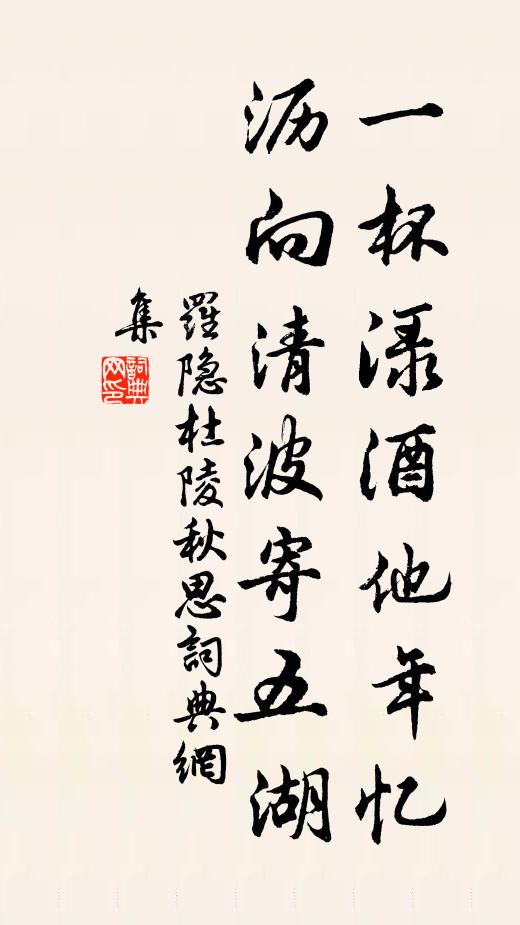 一杯渌酒他年忆
沥向清波寄五湖
羅隐杜陵秋思詞典網
集
詞典
网印